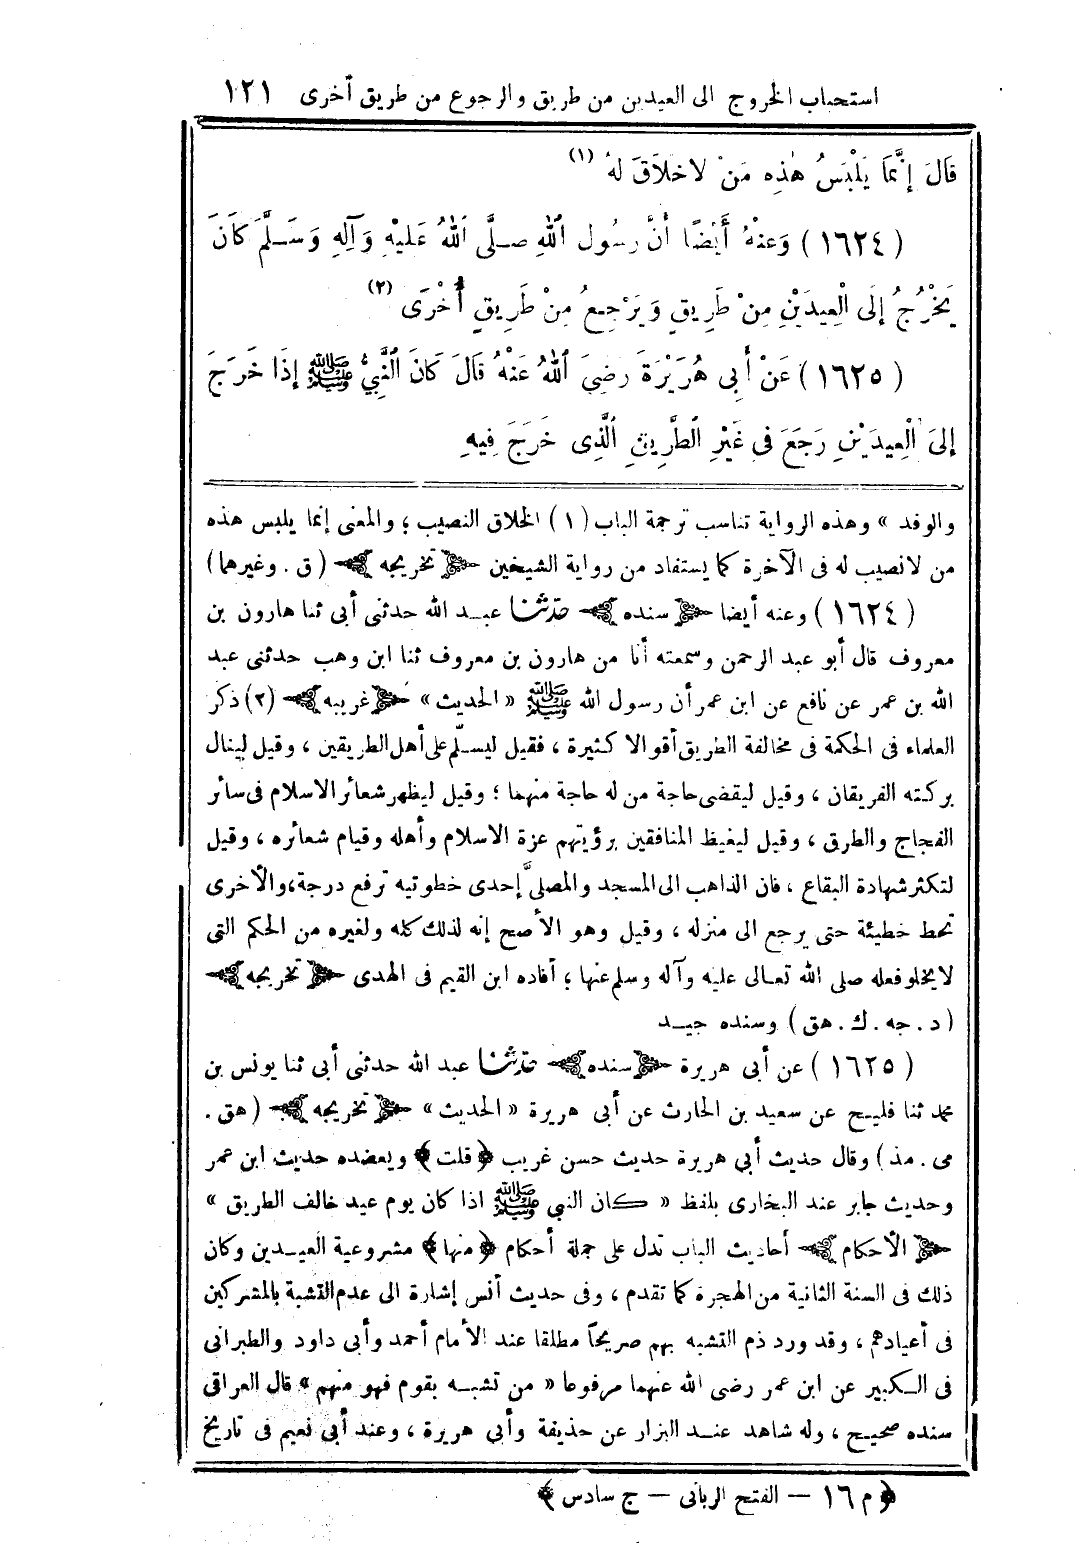 استحباب الخروج الى العيدين من طريق والرجوع من طريق أخرى ١٢١
قَالَ إِنَّمَا يَلْبَسُ هٰذِهِ مَنْ لَا خَلَاقَ لَهُ (١)
( ١٦٢٤ ) وَعَنْهُ أَيْضًا أَنَّ رَسُولَ ٱللهِ صَلَّى ٱللهُ عَلَيْهِ وَآلِهِ وَسَلَّمَ كَانَ
يَخْرُجُ إِلَى الْعِيدَيْنِ مِنْ طَرِيقٍ وَيَرْجِعُ مِنْ طَرِيقٍ أُخْرَى (٢)
( ١٦٢٥ ) عَنْ أَبِى هُرَيْرَةَ رَضِيَ ٱللهُ عَنْهُ قَالَ كَانَ ٱلنَّبِيُّ ﷺ إِذَا خَرَجَ
إِلَى الْعِيدَيْنِ رَجَعَ فِى غَيْرِ الطَّرِيقِ ٱلَّذِى خَرَجَ فِيهِ
والوفد » وهذه الرواية تناسب ترجمة الباب (١) الخلاق النصيب ؛ والمعنى إنما يلبس هذه
من لا نصيب له فى الآخرة كما يستفاد من رواية الشيخين ﴿ تخريجه ﴾ (ق . وغيرهما)
( ١٦٢٤ ) وعنه أيضا ﴿ سنده ﴾ حدثنا عبد الله حدثنى أبى ثنا هارون بن
معروف قال أبو عبد الرحمن وسمعته أنا من هارون بن معروف ثنا ابن وهب حدثنى عبد
الله بن عمر عن نافع عن ابن عمر أن رسول الله ﷺ « الحديث » ﴿ غريبه ﴾ (٢) ذكر
العلماء فى الحكمة فى مخالفة الطريق أقوالا كثيرة ، فقيل ليسلّم على أهل الطريقين ، وقيل لينال
بركته الفريقان ، وقيل ليقضى حاجة من له حاجة منهما ؛ وقيل ليظهر شعائر الاسلام فى سائر
الفجاج والطرق ، وقيل ليغيظ المنافقين برؤيتهم عزة الاسلام وأهله وقيام شعائره ، وقيل
لتكثر شهادة البقاع ، فان الذاهب الى المسجد والمصلىَّ إحدى خطوتيه ترفع درجة، والأخرى
تحط خطيئة حتى يرجع الى منزله ، وقيل وهو الأصح إنه لذلك كله ولغيره من الحكم التى
لا يخلو فعله صلى الله تعالى عليه وآله وسلم عنها ؛ أفاده ابن القيم فى الهدى ﴿ تخريجه ﴾
(د . جه . ك . هق) وسنده جيد
( ١٦٢٥ ) عن أبى هريرة ﴿ سنده ﴾ حدثنا عبد الله حدثنى أبى ثنا يونس بن
محمد ثنا فليح عن سعيد بن الحارث عن أبى هريرة « الحديث » ﴿ تخريجه ﴾ (هق .
مى . مذ) وقال حديث أبي هريرة حديث حسن غريب ﴿ قلت ﴾ ويعضده حديث ابن عمر
وحديث جابر عند البخارى بلفظ « كان النبي ﷺ اذا كان يوم عيد خالف الطريق »
﴿ الأحكام ﴾ أحاديث الباب تدل على جملة أحكام ﴿ منها ﴾ مشروعية العيدين وكان
ذلك فى السنة الثانية من الهجرة كما تقدم ، وفى حديث أنس إشارة الى عدم التشبة بالمشركين
فى أعيادهم ، وقد ورد ذم التشبه بهم صريحاً مطلقا عند الأمام أحمد وأبى داود والطبرانى
فى الكبير عن ابن عمر رضى الله عنهما مرفوعا « من تشبه بقوم فهو منهم » قال العراقى
سنده صحيح ، وله شاهد عند البزار عن حذيفة وأبي هريرة ، وعند أبي نعيم فى تاريخ
﴿ م ١٦ — الفتح الربانى — ج سادس ﴾